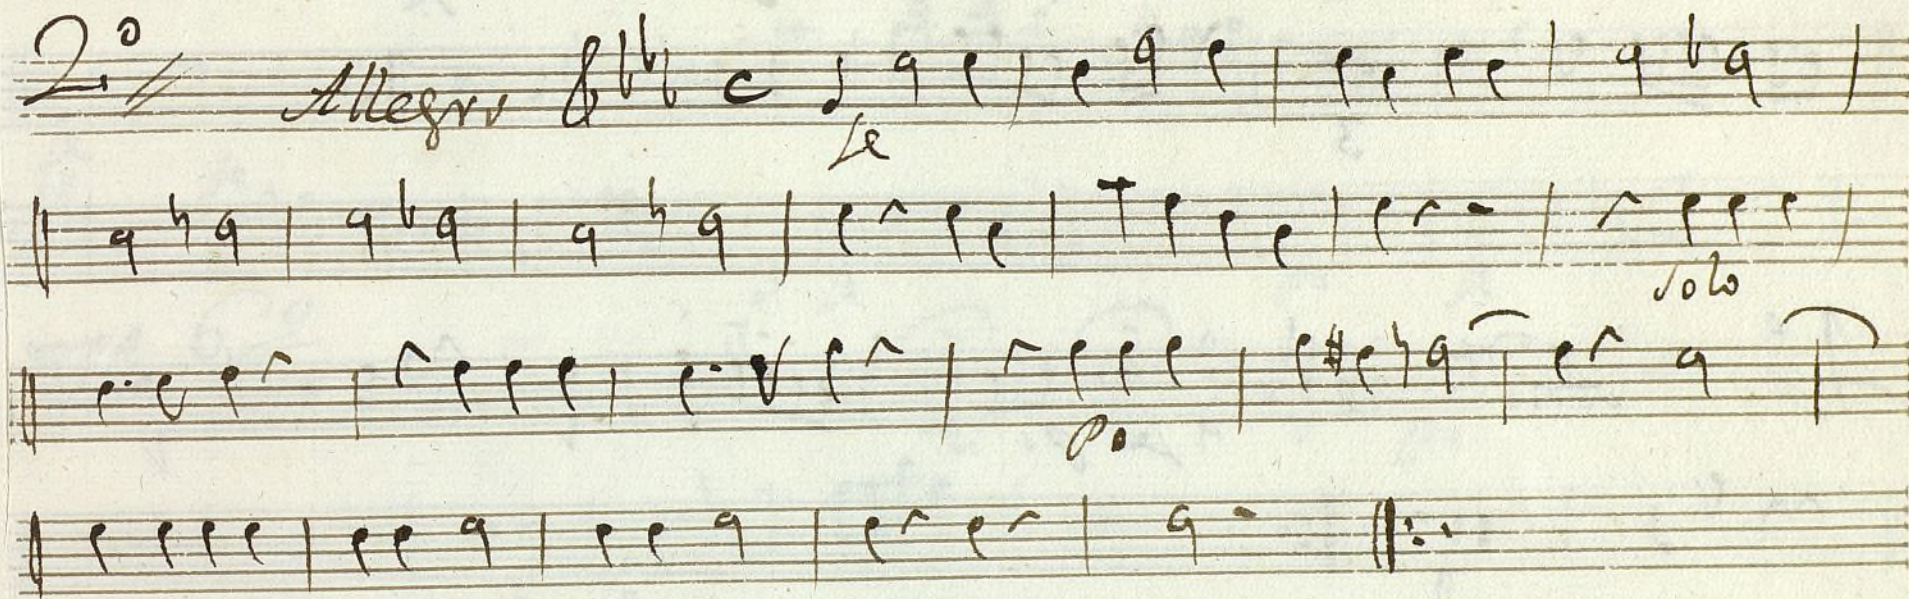 2.º
Allegro
solo
Pº